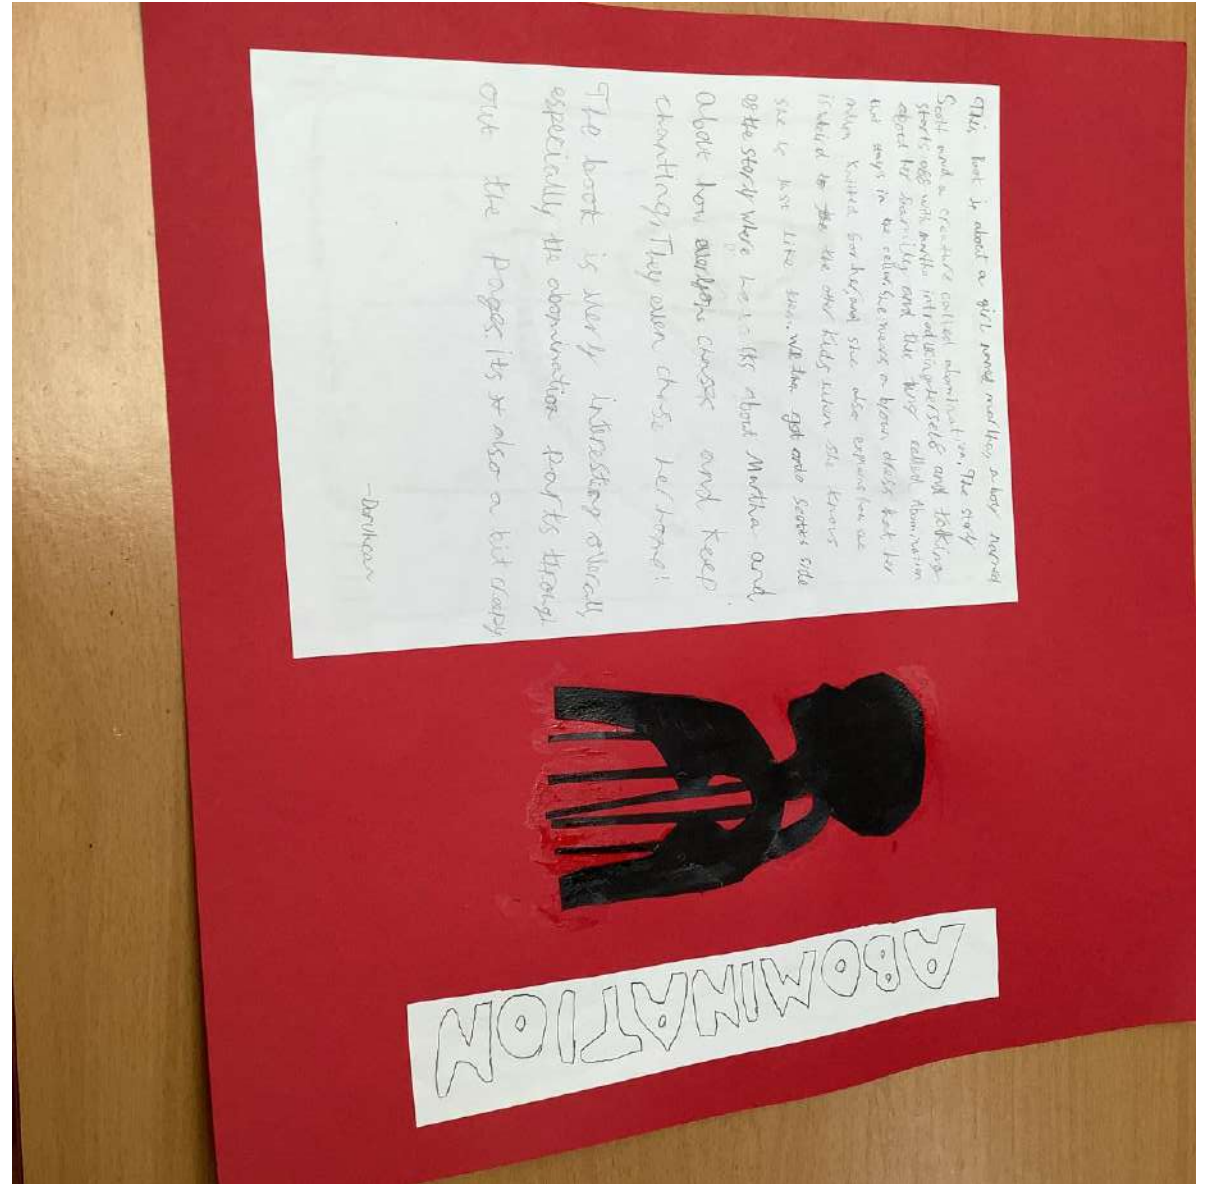 This book is about a girl named martha, a boy named
Scott and a creature called abomination. The story
starts off with martha introducing herself and talking
about her family and the thing called Abomination
that stays in the cellar. she wears a brown dress that her
mum knitted for her, and she also explains how she
is weird to the the other kids when she knows
she is just like them. we then get onto scotts side
of the story where he talks about Martha and
about how everyone chases and keep
chanting, They even chase her home!
The book is very interesting overall,
especially the abomination parts through
out the pages. its also a bit creepy
-Doruhcan
ABOMINATION